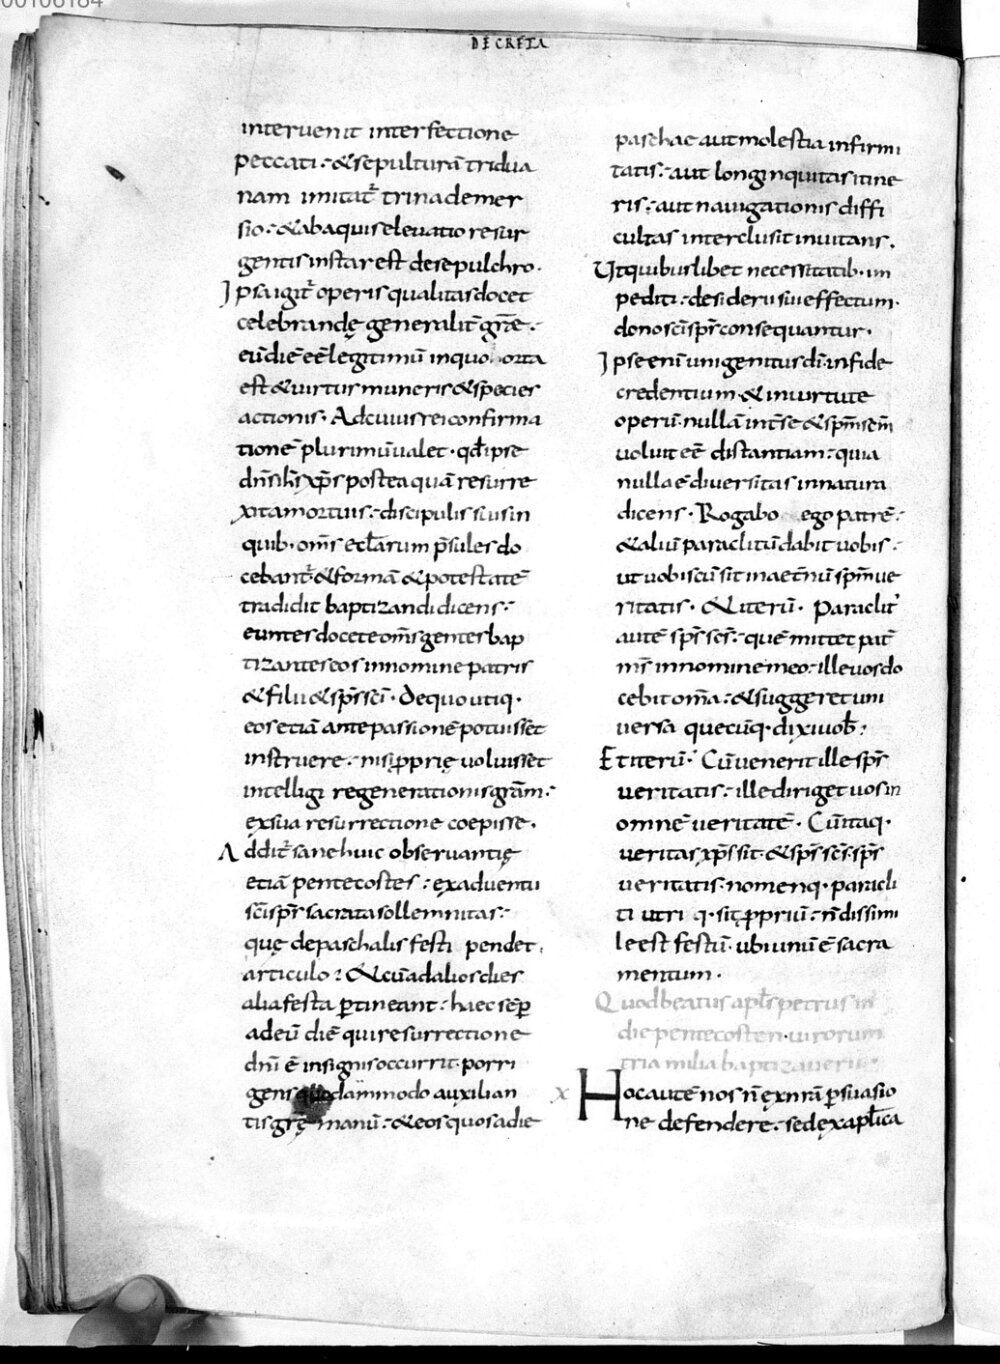 00106184
DECRETA
interuenit interfectione
peccati · &sepulturā tridua
nam imitat̄ trinademer
sio · &abaquiselevatio resur
gentis instar est desepulchro ·
Ipsaigit̄ operis qualitasdocet
celebrandę generalit̄ grē ·
eūdiē eē legitimū inquo orta
est &uirtus muneris &species
actionis · Adcuiusrei confirma
tionē plurimūualet · qđipse
dn̄s ih̄s xp̄s posteaquā resurre
xitamortuis · discipulis suisin
quib · om̄s eccl̄arum p̄sules do
cebant̄ · &formā &potestatē
tradidit baptizandi dicens ·
eunteſ docete om̄s gentes bap
tizantes eos innomine patris
&filii &sp̄s sc̄i · Dequo utiq ·
eos etiā ante passionē potuisset
instruere · nisi ꝓprię uoluisset
intelligi regenerationis grām ·
exsua resurrectione coepisse ·
Addit̄ sane huic obseruantię
etiā pentecostes · exaduentu
sc̄i sp̄s sacrata sollemnitas ·
quę depaschalis festi pendet ·
articulo · &cūadalios dies
aliafesta ꝑtineant · haec sēꝑ
adeū diē quiresurrectione
dn̄i ē insignis occurrit · porri
gens quodāmmodo auxilian
tis grę manū · &eos quosadie
paschae autmolestia infirmi
tatis · aut longinquitas itine
ris · aut nauigationis diffi
cultas interclusit inuitans ·
Ut quibuslibet necessitatib · im
pediti · desiderii sui effectum ·
dono sc̄i sp̄s consequantur ·
Ipse eni unigenitus dī · infide
credentium · &inuirtute
operū · nullā int̄ se &sp̄m sc̄m
uoluit eē distantiam · quia
nulla ē diuersitas innatura
dicens · Rogabo ego patrē ·
&aliū paraclitū dabit uobis ·
ut uobiscū sit inaet̄nū sp̄m ue
ritatis · &iterū · Paraclit'
autē sp̄s sc̄s · quē mittet pat̄
m̄s innomine meo · ille uos do
cebit om̄a · &suggeret uni
uersa quecūq · dixi uob̄ ·
Et iterū · Cū uenerit ille sp̄s
ueritatis · ille diriget uos in
omnē ueritatē · Cū itaq ·
ueritas xp̄s sit · &sp̄s sc̄s · sp̄s
ueritatis · nomenq · paracli
ti utri q · sit ꝓpriū · n̄ dissimi
le est festū · ubi unū ē sacra
mentum ·
Quod beatus apl̄s petrus in
die pentecosten · uirorum
tria milia baptizauerit ·
x Hoc autē nos n̄ ex nrā ꝑsuasio
ne defendere · sed ex apl̄ica